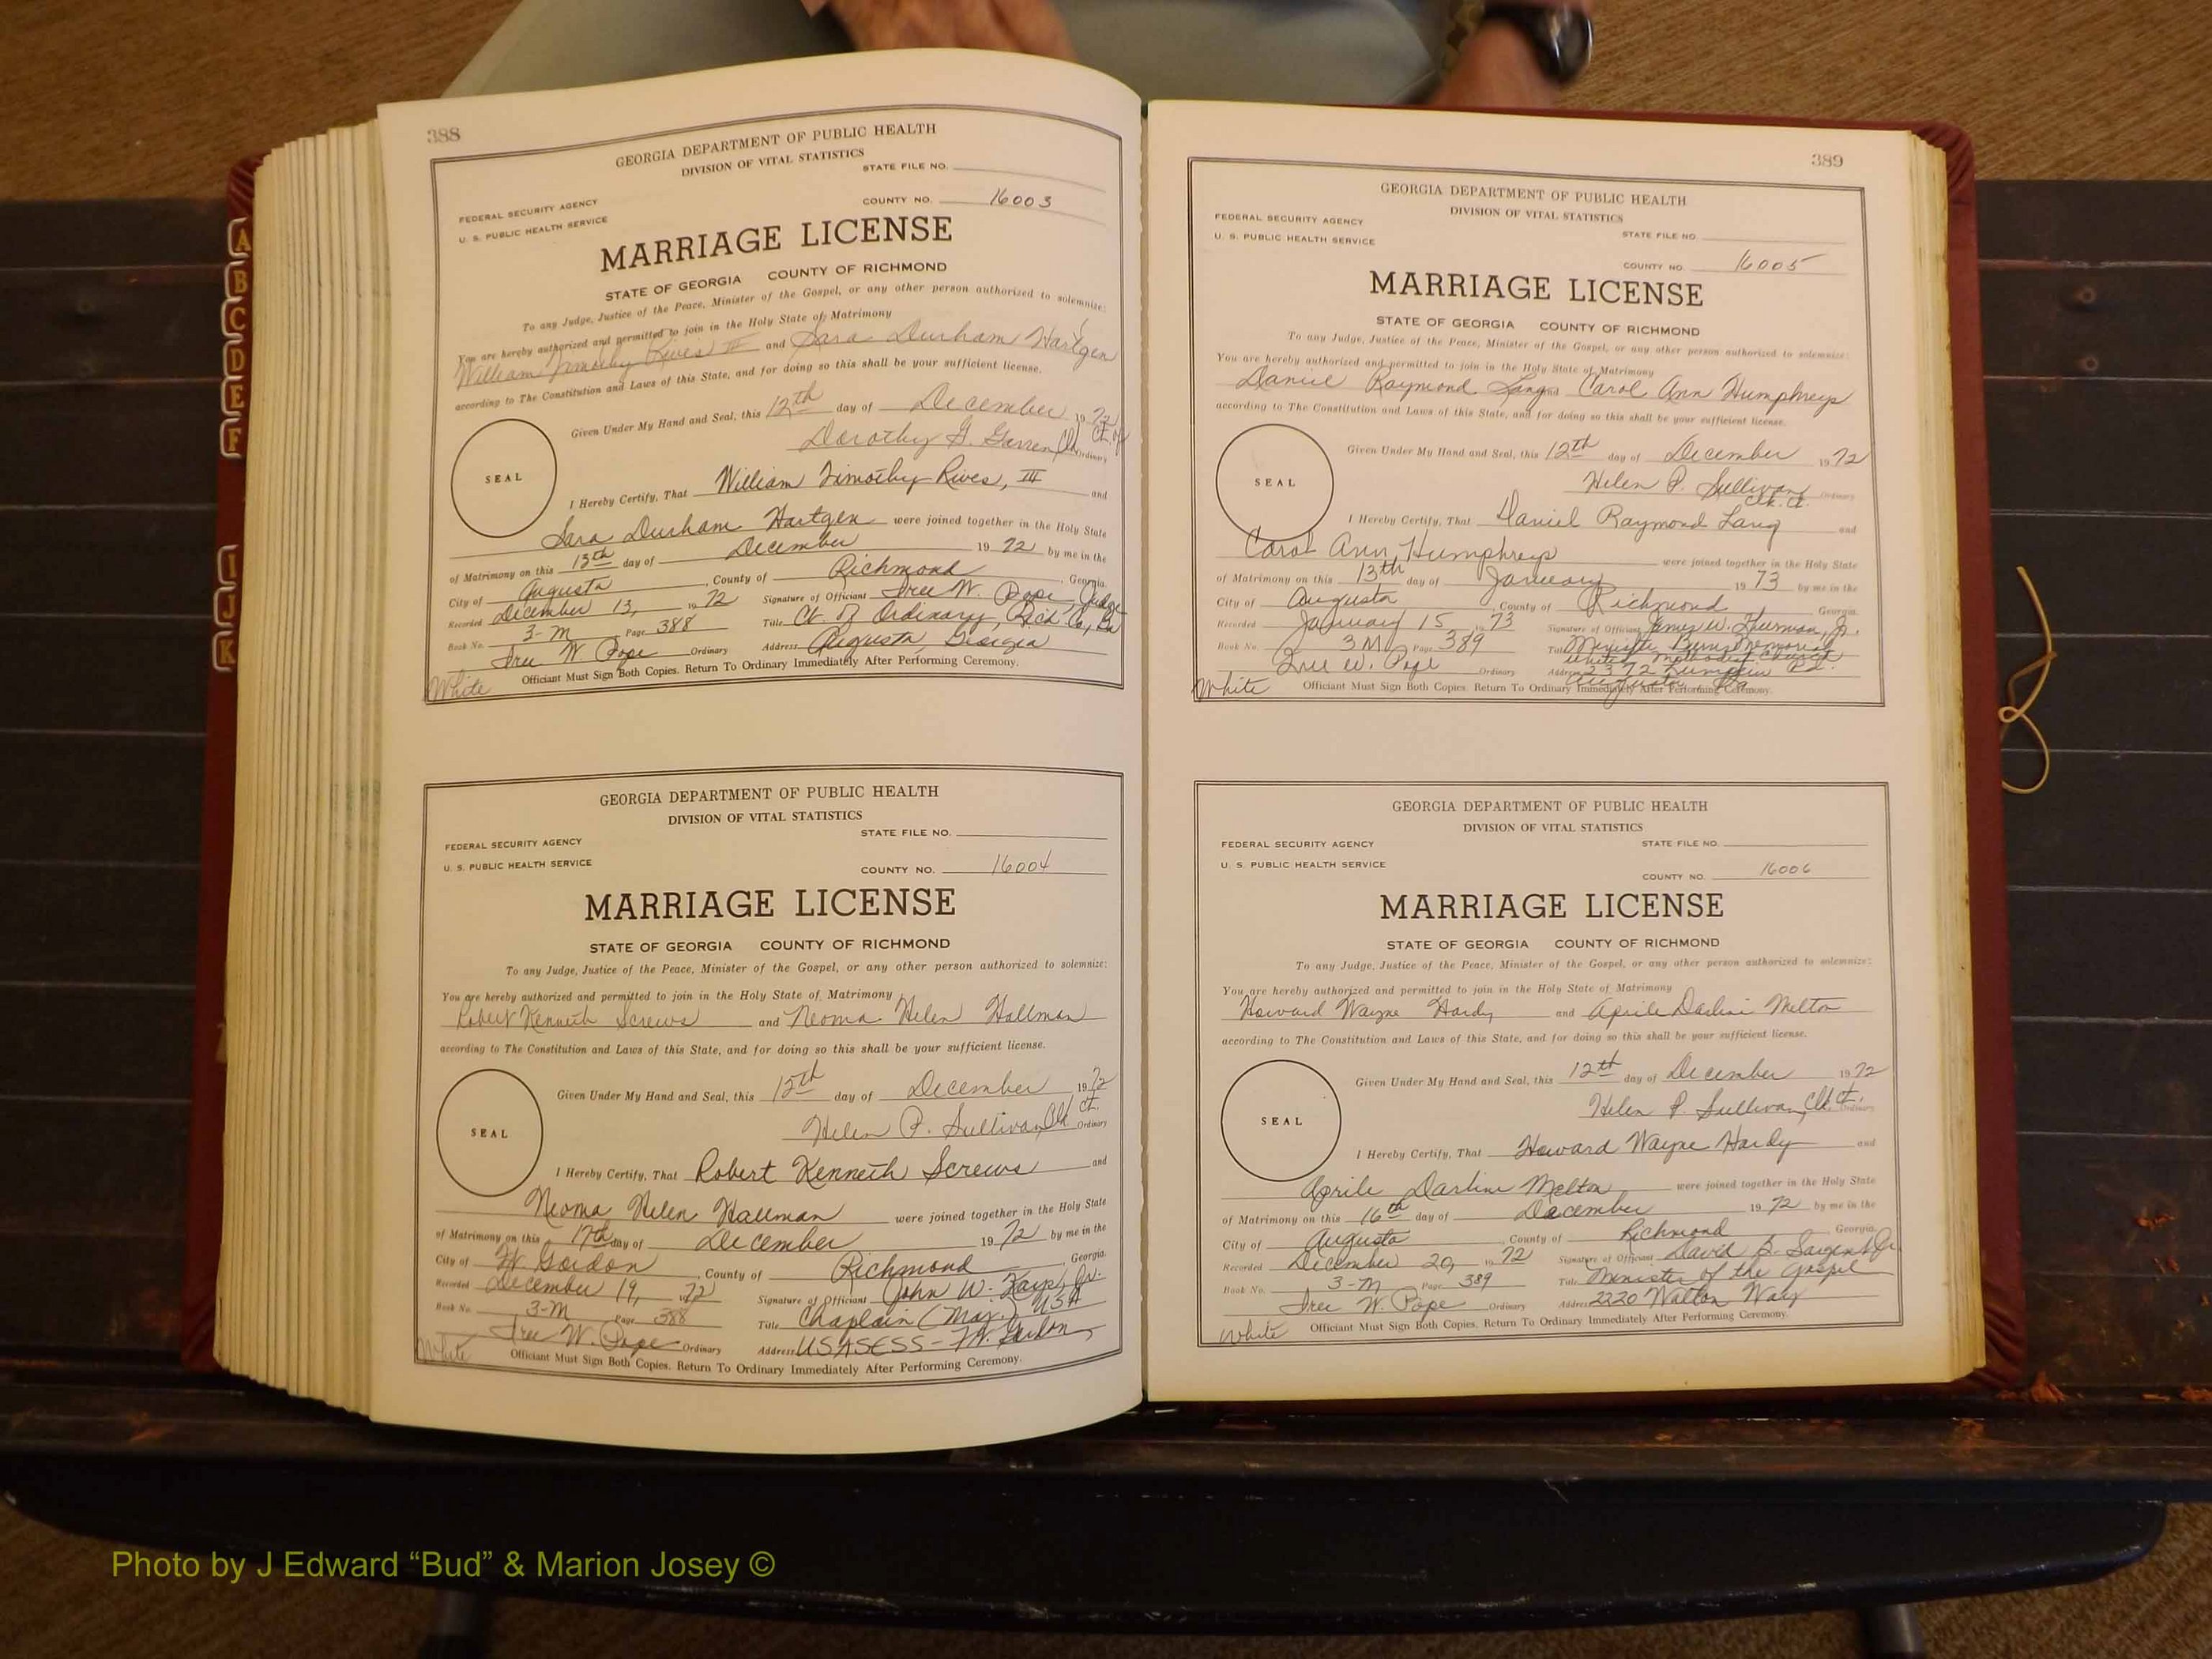 388
GEORGIA DEPARTMENT OF PUBLIC HEALTH
DIVISION OF VITAL STATISTICS
STATE FILE NO.
FEDERAL SECURITY AGENCY
COUNTY NO. 16003
U. S. PUBLIC HEALTH SERVICE
MARRIAGE LICENSE
STATE OF GEORGIA COUNTY OF RICHMOND
To any Judge, Justice of the Peace, Minister of the Gospel, or any other person authorized to solemnize:
You are hereby authorized and permitted to join in the Holy State of Matrimony
William Timothy Rives III and Sara Durham Hartgen
according to The Constitution and Laws of this State, and for doing so this shall be your sufficient license.
Given Under My Hand and Seal, this 12th day of December 1972
Dorothy G. Garren, Clk Ct. of Ordinary
SEAL
I Hereby Certify, That William Timothy Rives, III and
Sara Durham Hartgen were joined together in the Holy State
of Matrimony on this 13th day of December 1972 by me in the
City of Augusta, County of Richmond, Georgia.
Recorded December 13, 1972 Signature of Officiant Iree W. Pope, Judge
Book No. 3-M Page 388 Title Ct. of Ordinary, Rich Co., Ga
Iree W. Pope Ordinary Address Augusta, Georgia
White Officiant Must Sign Both Copies. Return To Ordinary Immediately After Performing Ceremony.
GEORGIA DEPARTMENT OF PUBLIC HEALTH
DIVISION OF VITAL STATISTICS
STATE FILE NO.
FEDERAL SECURITY AGENCY
U. S. PUBLIC HEALTH SERVICE
COUNTY NO. 16004
MARRIAGE LICENSE
STATE OF GEORGIA COUNTY OF RICHMOND
To any Judge, Justice of the Peace, Minister of the Gospel, or any other person authorized to solemnize:
You are hereby authorized and permitted to join in the Holy State of Matrimony
Robert Kenneth Screws and Neoma Helen Hallman
according to The Constitution and Laws of this State, and for doing so this shall be your sufficient license.
Given Under My Hand and Seal, this 12th day of December 1972
Helen P. Sullivan, Clk. Ct. Ordinary
SEAL
I Hereby Certify, That Robert Kenneth Screws and
Neoma Helen Hallman were joined together in the Holy State
of Matrimony on this 17th day of December 1972 by me in the
City of Ft. Gordon, County of Richmond, Georgia.
Recorded December 19, 1972 Signature of Officiant John W. Jr.
Book No. 3-M Page 388 Title Chaplain (Maj.) USA
Iree W. Pope Ordinary Address USASESS - Ft. Gordon
White Officiant Must Sign Both Copies. Return To Ordinary Immediately After Performing Ceremony.
389
GEORGIA DEPARTMENT OF PUBLIC HEALTH
DIVISION OF VITAL STATISTICS
FEDERAL SECURITY AGENCY
STATE FILE NO.
U. S. PUBLIC HEALTH SERVICE
COUNTY NO. 16005
MARRIAGE LICENSE
STATE OF GEORGIA COUNTY OF RICHMOND
To any Judge, Justice of the Peace, Minister of the Gospel, or any other person authorized to solemnize:
You are hereby authorized and permitted to join in the Holy State of Matrimony
Daniel Raymond Lang and Carol Ann Humphreys
according to The Constitution and Laws of this State, and for doing so this shall be your sufficient license.
Given Under My Hand and Seal, this 12th day of December 1972
Helen P. Sullivan Clk. Ct. Ordinary
SEAL
I Hereby Certify, That Daniel Raymond Lang and
Carol Ann Humphreys were joined together in the Holy State
of Matrimony on this 13th day of January 1973 by me in the
City of Augusta, County of Richmond, Georgia.
Recorded January 15 1973 Signature of Officiant James W. Thurman, Jr.
Book No. 3M Page 389 Title Minister Burns Memorial
United Methodist Church
Iree W. Pope Ordinary Address 2372 Lumpkin Rd.
Augusta, Ga
White Officiant Must Sign Both Copies. Return To Ordinary Immediately After Performing Ceremony.
GEORGIA DEPARTMENT OF PUBLIC HEALTH
DIVISION OF VITAL STATISTICS
FEDERAL SECURITY AGENCY
STATE FILE NO.
U. S. PUBLIC HEALTH SERVICE
COUNTY NO. 16006
MARRIAGE LICENSE
STATE OF GEORGIA COUNTY OF RICHMOND
To any Judge, Justice of the Peace, Minister of the Gospel, or any other person authorized to solemnize:
You are hereby authorized and permitted to join in the Holy State of Matrimony
Howard Wayne Hardy and Aprile Darline Melton
according to The Constitution and Laws of this State, and for doing so this shall be your sufficient license.
Given Under My Hand and Seal, this 12th day of December 1972
Helen P. Sullivan, Clk. Ct. Ordinary
SEAL
I Hereby Certify, That Howard Wayne Hardy and
Aprile Darline Melton were joined together in the Holy State
of Matrimony on this 16th day of December 1972 by me in the
City of Augusta, County of Richmond, Georgia.
Recorded December 20, 1972 Signature of Officiant David B. Sargent Jr.
Book No. 3-M Page 389 Title Minister of the Gospel
Iree W. Pope Ordinary Address 2220 Walton Way
White Officiant Must Sign Both Copies. Return To Ordinary Immediately After Performing Ceremony.
A
B
C
D
E
F
I
J
K
Photo by J Edward “Bud” & Marion Josey ©